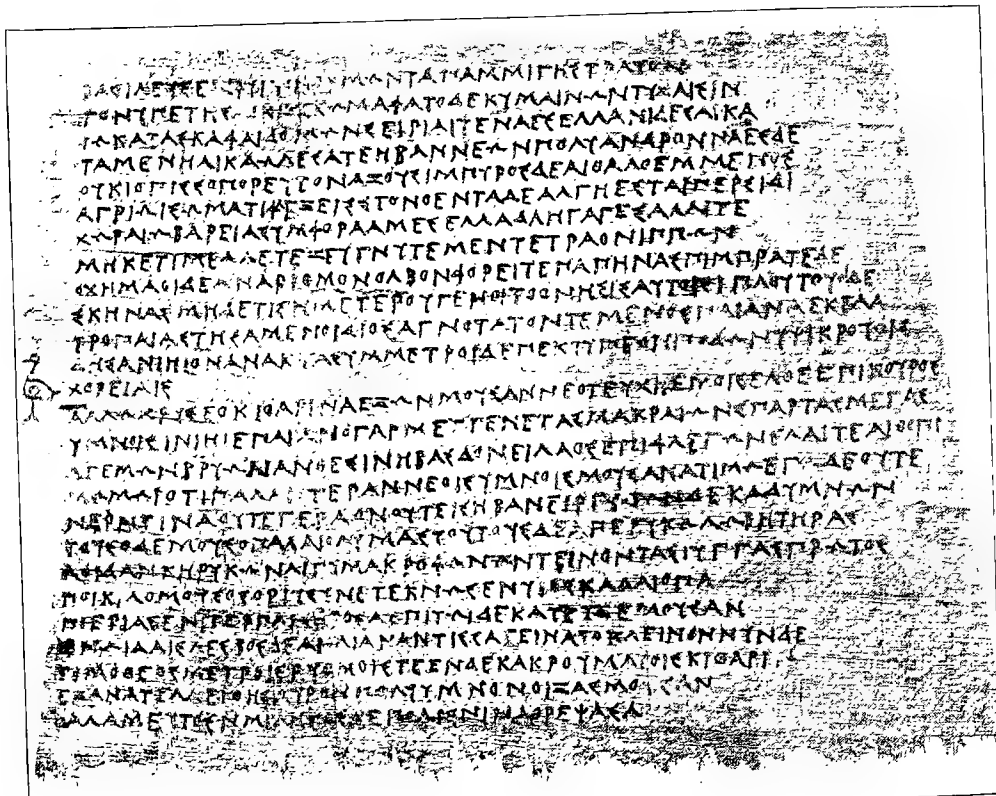 ΒΑΣΙΛΕΥΣΕ ΟΡΜΩΝΤΑΠΑΜΜΙΓΗΣΤΡΑΤΟΝ
ΓΟΝΥΠΕΤΗΣ ΣΩΜΑΦΑΤΟΔΕΚΥΜΑΙΝΩΝΤΥΧΑΙΣΙΝ
ΙΩΚΑΤΑΣΚΑΦΑΙΔΟΜΩΝΣΕΙΡΙΑΙΤΕΝΑΕΣΕΛΛΑΝΙΔΕΣΑΙΚΑ
ΤΑΜΕΝΗΛΙΚΑΩΛΕΣΑΤΕΗΒΑΝΝΕΩΝΠΟΛΥΑΝΔΡΟΝΝΑΕΣΔΕ
ΟΥΚΙΟΠΙΣΣΟΠΟΡΕΥΤΟΝΑΞΟΥΣΙΜΠΥΡΟΣΔΕΑΙΘΑΛΟΕΜΜΕΝΟΣ
ΑΓΡΙΩΙΣΩΜΑΤΙΦΛΕΞΕΙΣΤΟΝΟΕΝΤΑΔΕΑΛΓΗΕΣΤΑΙΠΕΡΣΙΔΙ
ΧΩΡΑΙΩΒΑΡΕΙΑΣΥΜΦΟΡΑΑΜΕΣΕΛΛΑΔΑΗΓΑΓΕΣΑΛΛΙΤΕ
ΜΗΚΕΤΙΜΕΛΛΕΤΕΖΕΥΓΝΥΤΕΜΕΝΤΕΤΡΑΟΝΙΠΠΩΝ
ΟΧΗΜΑΟΙΔΕΑΝΑΡΙΘΜΟΝΟΛΒΟΝΦΟΡΕΙΤΕΠΑΠΗΝΑΣΠΙΜΠΡΑΤΕΔΕ
ΣΚΗΝΑΣΜΗΔΕΤΙΣΗΜΕΤΕΡΟΥΓΕΝΟΙΤΟΟΝΗΣΙΣΑΥΤΟΙΣΙΠΛΟΥΤΟΥΟΙΔΕ
ΤΡΟΠΑΙΑΣΤΗΣΑΜΕΝΟΙΔΙΟΣΑΓΝΟΤΑΤΟΝΤΕΜΕΝΟΣΠΑΙΑΝΑΕΚΕΛΑ
ΔΗΣΑΝΙΗΙΟΝΑΝΑΚΤΑΣΥΜΜΕΤΡΟΙΔΕΠΕΚΤΥΠΕΟΜΠΟΔΩΝΥΨΙΚΡΟΤΟΙΣ
ΧΟΡΕΙΑΙΣ
ΑΛΛΩΧΡΥΣΕΟΚΙΘΑΡΙΝΑΕΞΩΝΜΟΥΣΑΝΝΕΟΤΕΥΧΗΕΜΟΙΣΕΛΘΕΕΠΙΚΟΥΡΟΣ
ΥΜΝΟΙΣΙΝΙΗΙΕΠΑΙΑΝΟΓΑΡΜΕΥΓΕΝΕΤΑΣΜΑΚΡΑΙΩΝΣΠΑΡΤΑΣΜΕΓΑΣ
ΑΓΕΜΩΝΒΡΥΩΝΑΝΘΕΣΙΝΗΒΑΣΔΟΝΕΙΛΑΟΣΕΠΙΦΛΕΓΩΝΕΛΑΙΤΕΑΙΘΟΠΙ
ΜΩΜΩΙΟΤΙΠΑΛΑΙΟΤΕΡΑΝΝΕΟΙΣΥΜΝΟΙΣΜΟΥΣΑΝΑΤΙΜΩΕΓΩΔΕΟΥΤΕ
ΝΕΟΝΤΙΝΑΟΥΤΕΓΕΡΑΟΝΟΥΤΕΙΣΗΒΑΝΕΙΡΓΩΤΩΝΔΕΚΑΔΥΜΝΩΝ
ΤΟΥΣΔΕΜΟΥΣΟΠΑΛΑΙΟΛΥΜΑΣΤΟΥΤΟΥΣΔΑΠΕΡΥΚΩΛΩΒΗΤΗΡΑΣ
ΑΟΙΔΑΝΚΗΡΥΚΩΝΛΙΓΥΜΑΚΡΟΦΩΝΩΝΤΕΙΝΟΝΤΑΣΙΥΓΓΑΣΠΡΩΤΟΣ
ΠΟΙΚΙΛΟΜΟΥΣΟΣΟΡΙΥΣΥΝΕΤΕΚΝΩΣΕΝΥΙΟΣΚΑΛΛΙΟΠΑ
ΠΙΕΡΙΑΣΕΝΙΤΕΡΠΑΝΔΡΟΣΕΠΙΤΩΙΔΕΚΑΤΕΥΞΕΜΟΥΣΑΝ
ΕΝΩΙΔΑΙΣΛΕΣΒΟΣΔΕΑΙΟΛΙΑΝΑΝΤΙΣΣΑΙΓΕΙΝΑΤΟΚΛΕΙΝΟΝΝΥΝΔΕ
ΤΙΜΟΘΕΟΣΜΕΤΡΟΙΣΡΥΘΜΟΙΣΤΕΕΝΔΕΚΑΚΡΟΥΜΑΤΟΙΣΚΙΘΑΡΙ
ΕΞΑΝΑΤΕΛΛΕΙΘΗΣΑΥΡΟΝΠΟΛΥΥΜΝΟΝΟΙΞΑΣΜΟΥΣΑΝ
ΘΑΛΑΜΕΥΤΟΝΜΙΛΗΤΟΣΔΕΠΟΛΙΣΝΙΝΑΘΡΕΨΑΣΑ